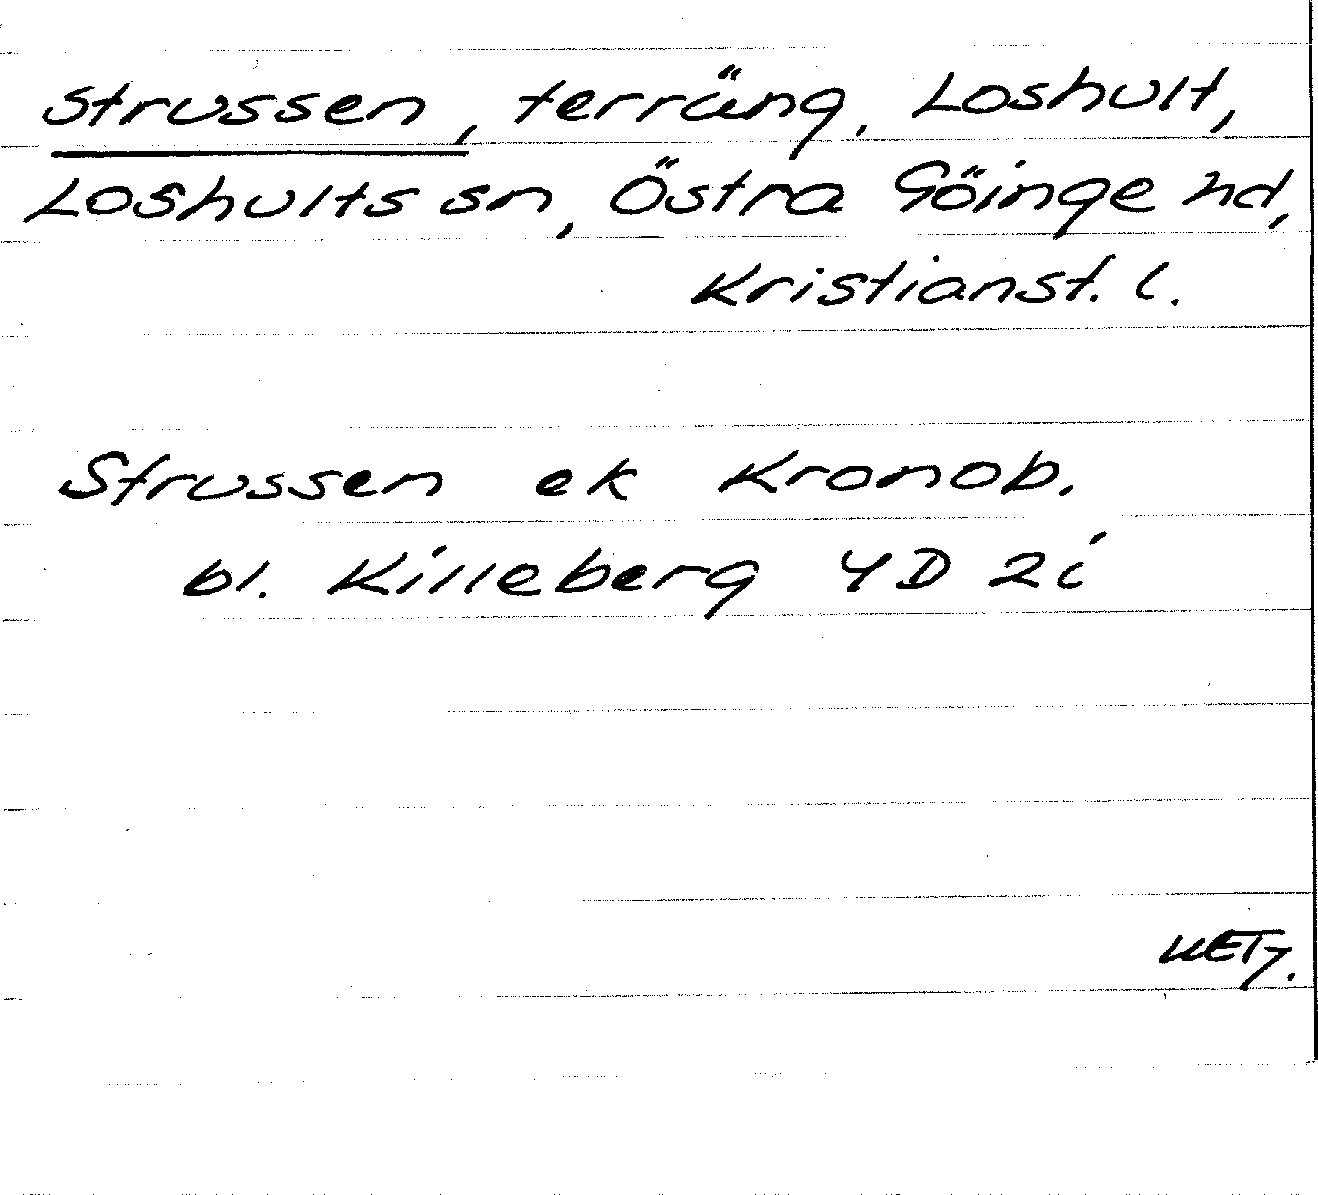 Strussen, terräng, Loshult,
Loshults sn, Östra Göinge hd,
Kristianst. l.
Strussen ek Kronob.
bl. Killeberg 4D 2i